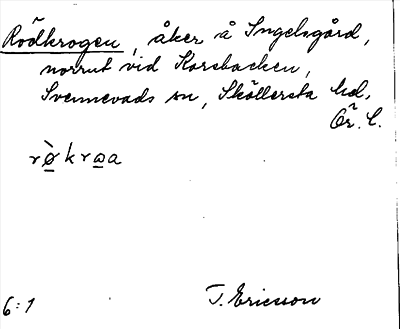 Rödkrogen, åker å Ingelsgård,
norrut vid Korsbacken,
Svennevads sn, Sköllersta hd,
Ör. l.
rø̀krωa
6:1
T. Ericsson